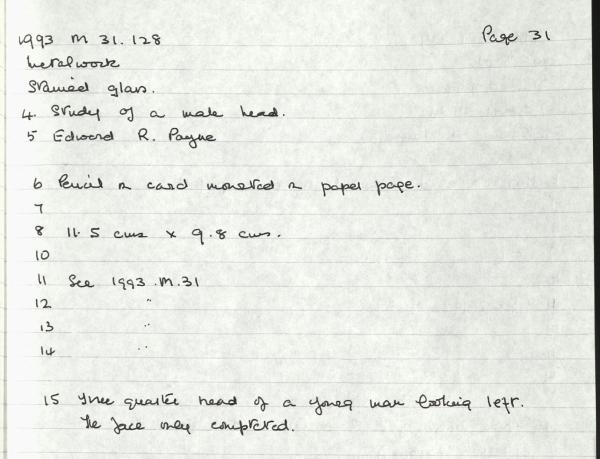 1993 M 31.128 Page 31
Metalwork
Stained glass.
4. Study of a male head.
5 Edward R. Payne
6 Pencil on card mounted on paper page.
7
8 11.5 cms x 9.8 cms.
10
11 See 1993.M.31
12 "
13 "
14 "
15 Three quarter head of a young man looking left.
The face only completed.